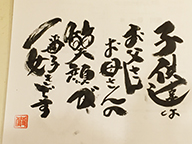 子供達は
お父さん
お母さんの
笑顔が
一番好きです